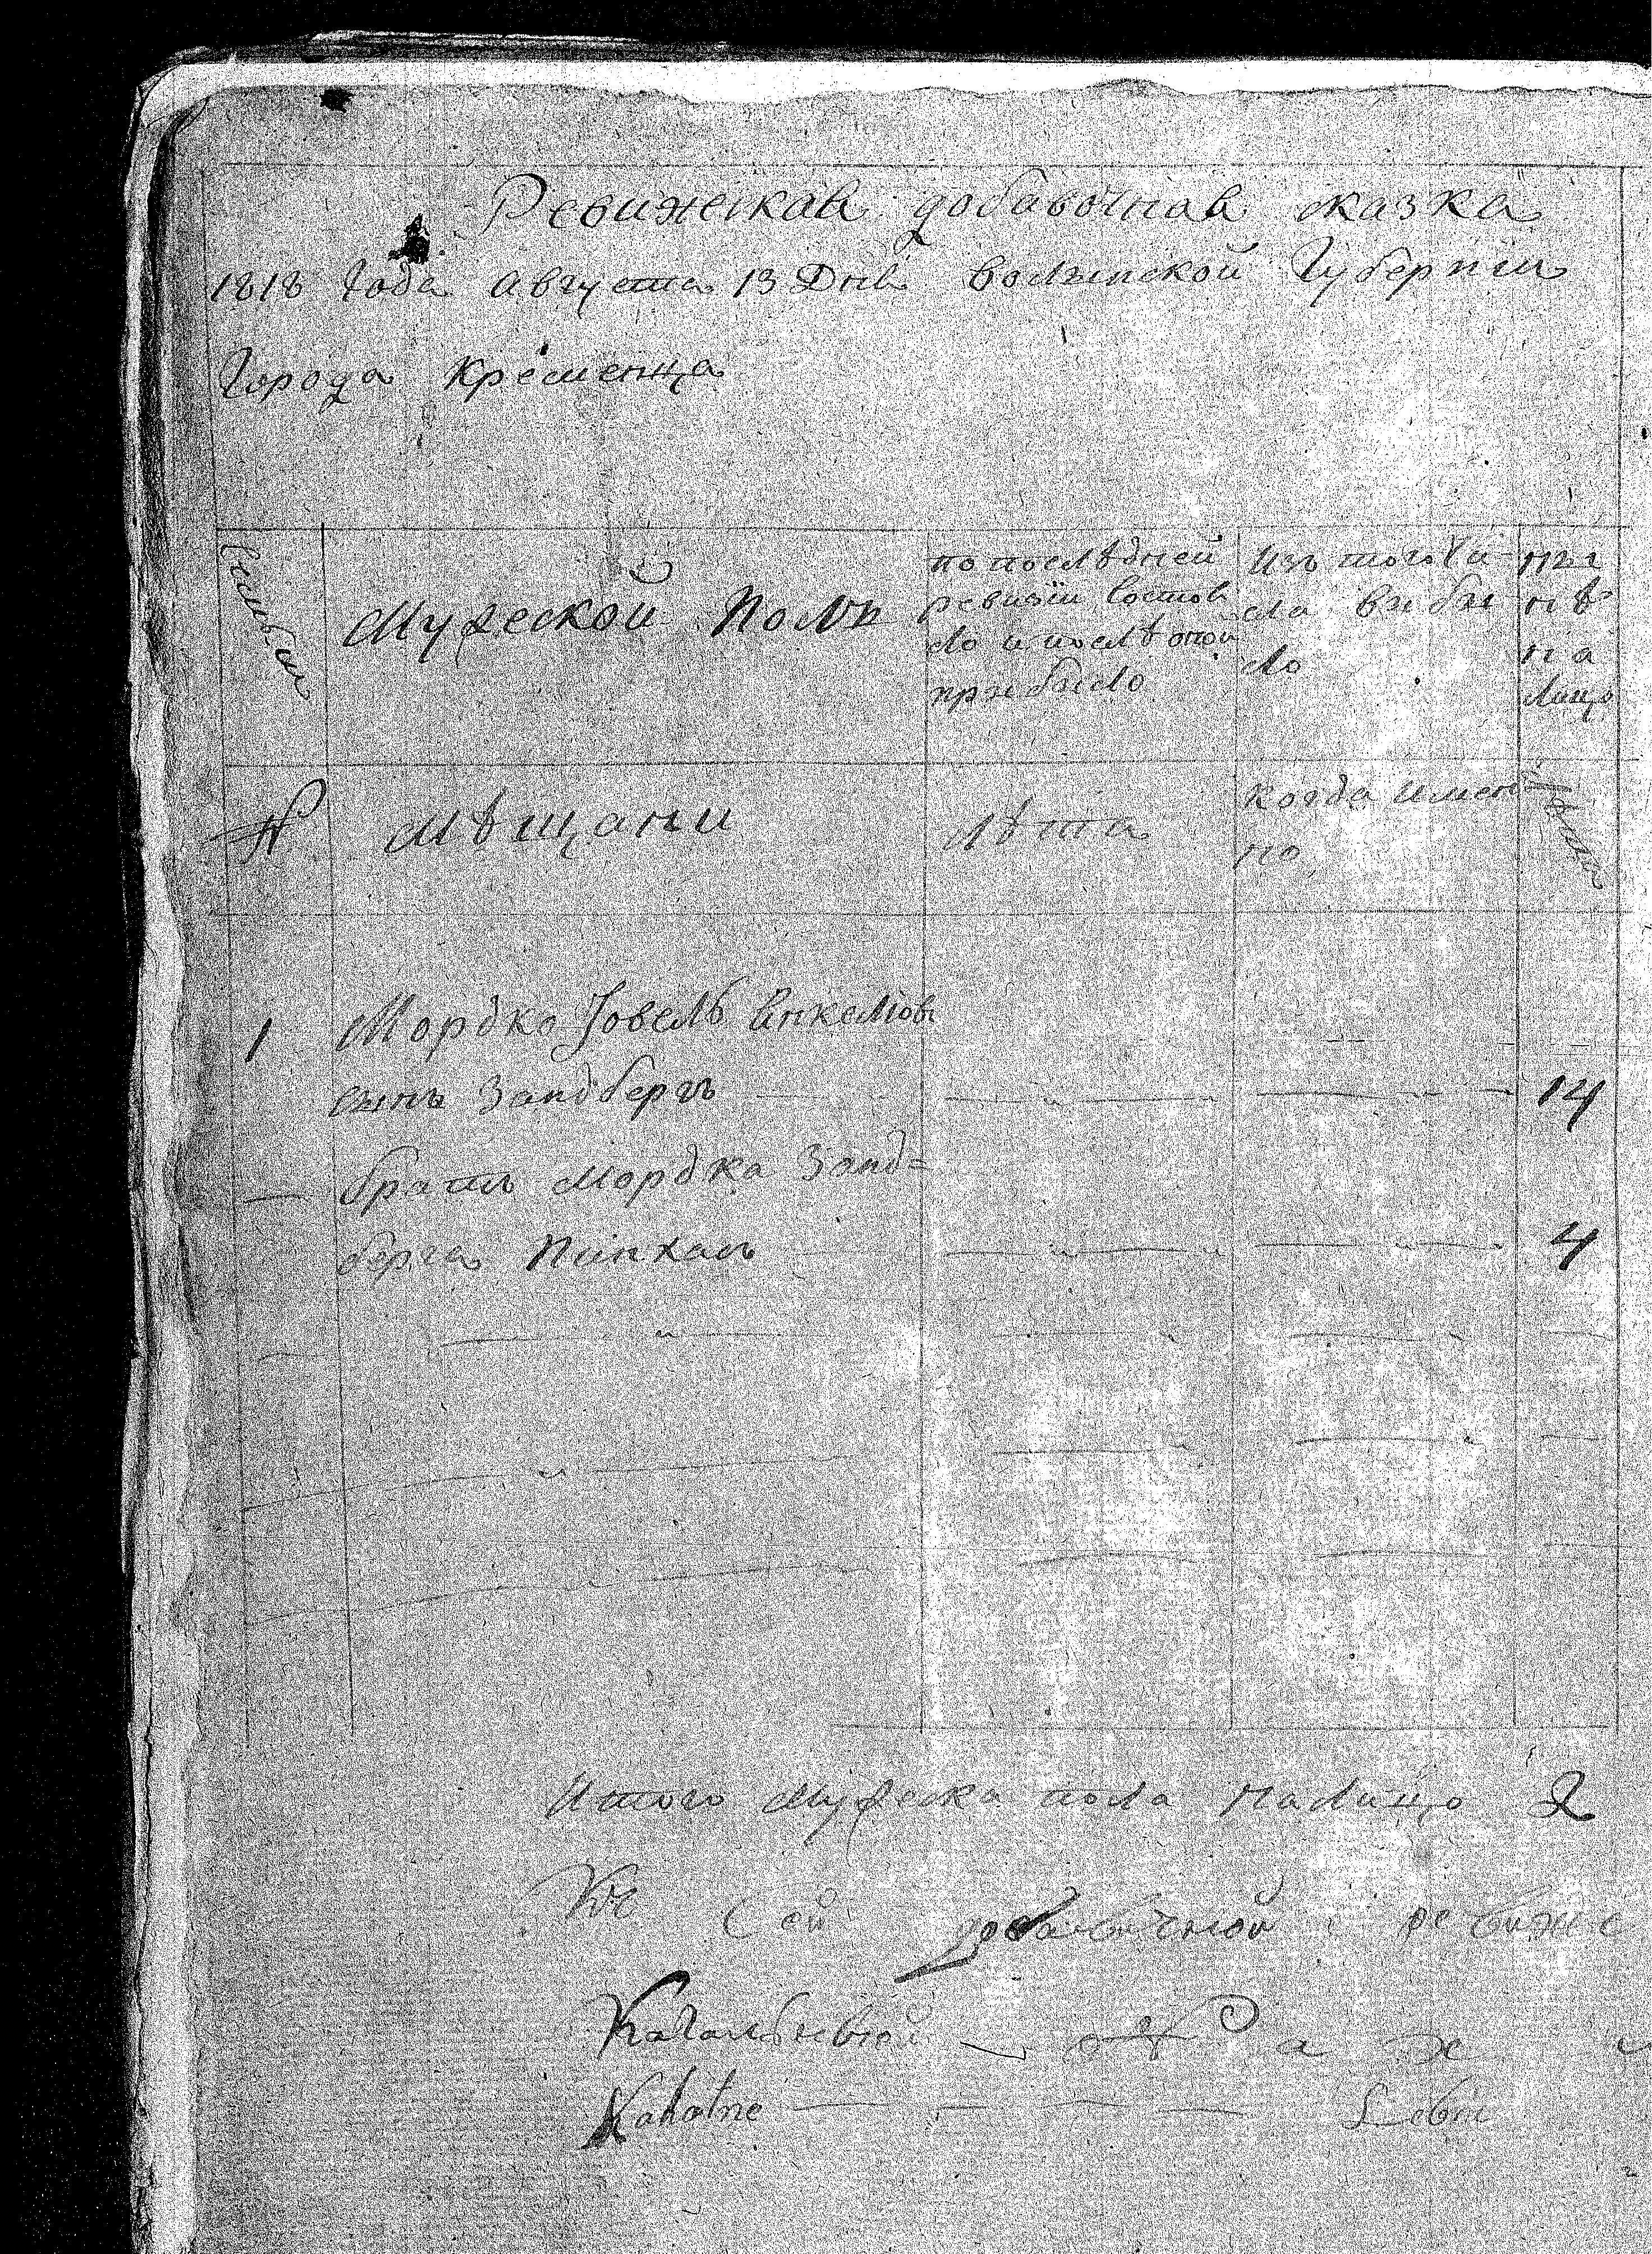 Ревижская добавочная сказка
1818 Года Августа 13 Дня Волынской Губернии
Города Кременца
Семьи
Мужеской Полъ
по последней
ревизіи состоя
ло и послѣ оной
прибыло
Изъ того чи
сла выбы
ло
нын
нѣ
на
лицо
№
Мѣщани
лѣта
когда имен
но
лѣта
1 Мордко Іовель Янкелюв
сынъ Зандбергъ 14
братъ Мордка Занд=
берга Пинхасъ 4
Итого мужеска пола налицо 2
Къ сей добавочной ревижс
Кагальный
Kahalne